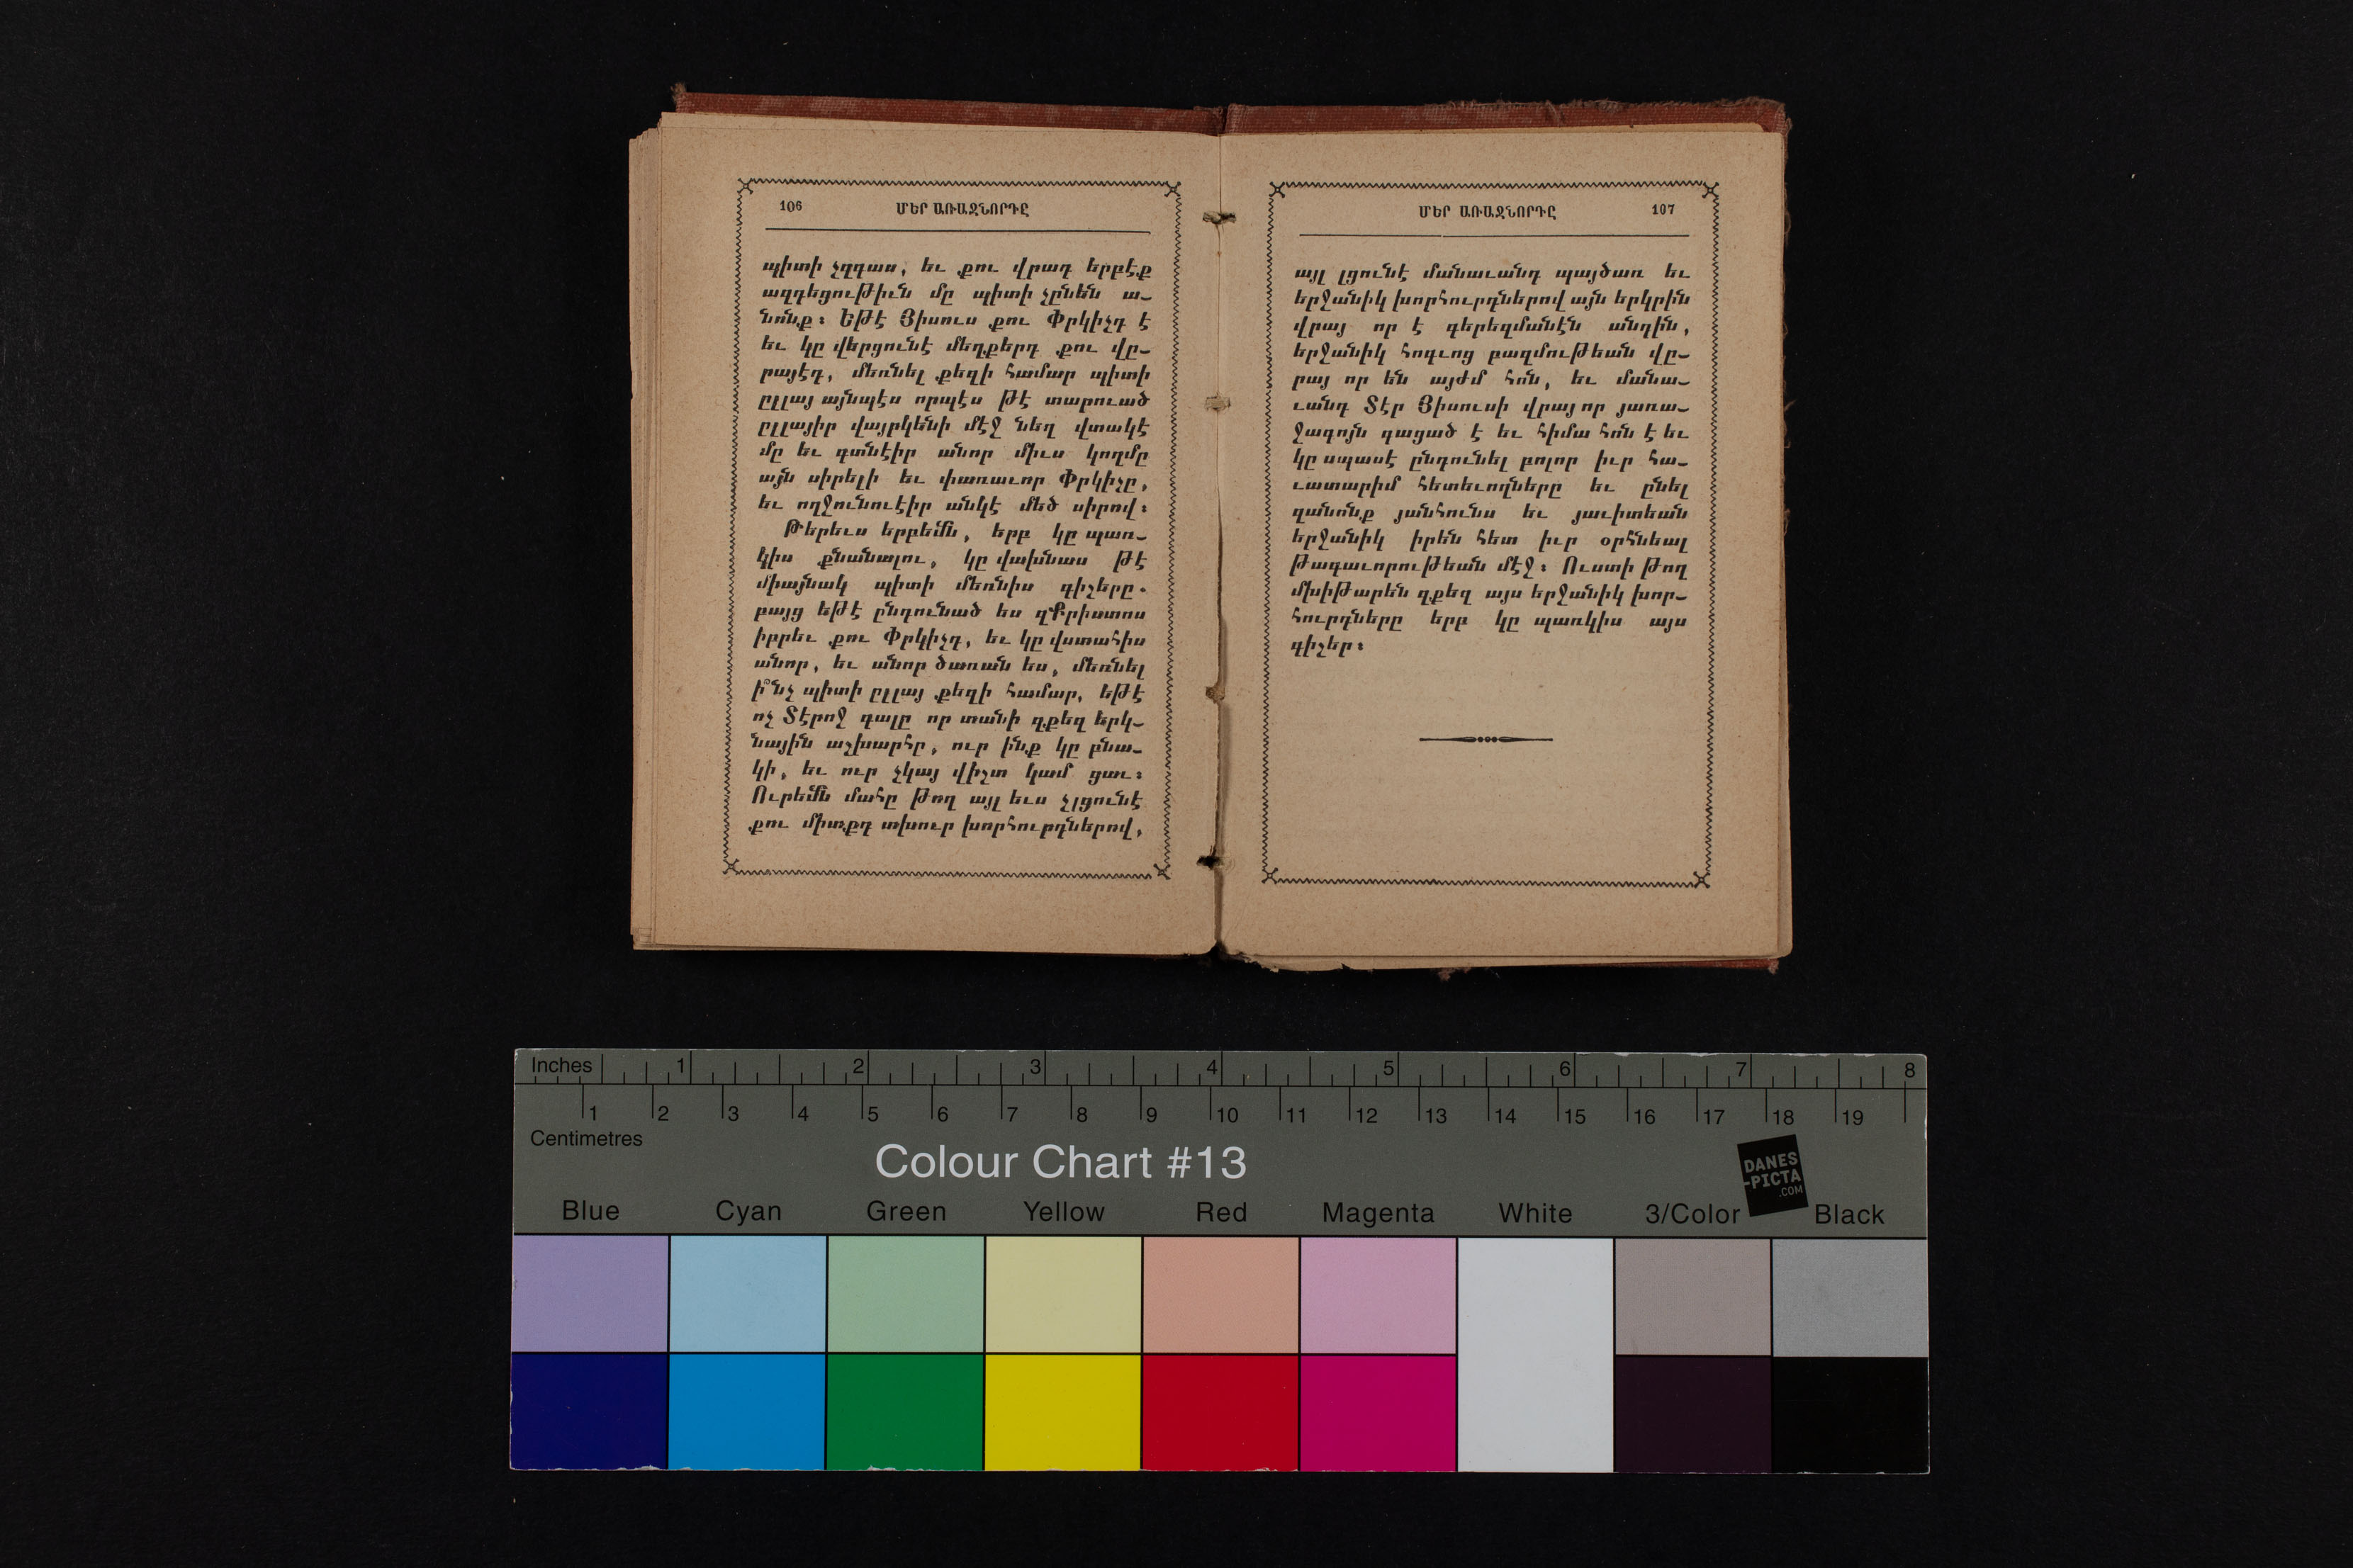 106
ՄԵՐ ԱՌԱՋՆՈՐԴԸ
պիտի չզգաս, եւ քու վրադ երբէք
ազդեցութիւն մը պիտի չընեն ա–
նոնք։ Եթէ Յիսուս քու Փրկիչդ է
եւ կը վերցունէ մեղքերդ քու վը–
րայէդ, մեռնել քեզի համար պիտի
ըլլայ այնպէս որպէս թէ տարուած
ըլլայիր վայրկենի մէջ նեղ վտակէ
մը եւ գտնէիր անոր միւս կողմը
այն սիրելի եւ փառաւոր Փրկիչը,
եւ ողջունուէիր անկէ մեծ սիրով։
Թերեւս երբեմն, երբ կը պառ–
կիս քնանալու, կը վախնաս թէ
միայնակ պիտի մեռնիս գիշերը.
բայց եթէ ընդունած ես զՔրիստոս
իբրեւ քու Փրկիչդ, եւ կը վստահիս
անոր, եւ անոր ծառան ես, մեռնել
ի՞նչ պիտի ըլլայ քեզի համար, եթէ
ոչ Տէրոջ գալը որ տանի զքեզ երկ–
նային աշխարհը, ուր ինք կը բնա–
կի, եւ ուր չկայ վիշտ կամ ցաւ։
Ուրեմն մահը թող այլ եւս չլցունէ
քու միտքդ տխուր խորհուրդներով,
ՄԵՐ ԱՌԱՋՆՈՐԴԸ
107
այլ լցունէ մանաւանդ պայծառ եւ
երջանիկ խորհուրդներով այն երկրին
վրայ որ է գերեզմանէն անդին,
երջանիկ հոգւոց բազմութեան վը–
րայ որ են այժմ հոն, եւ մանա–
ւանդ Տէր Յիսուսի վրայ որ յառա–
ջագոյն գացած է եւ հիմա հոն է եւ
կը սպասէ ընդունել բոլոր իւր հա–
ւատարիմ հետեւողները եւ ընել
զանոնք յանհունս եւ յաւիտեան
երջանիկ իրեն հետ իւր օրհնեալ
թագաւորութեան մէջ։ Ուստի թող
մխիթարեն զքեզ այս երջանիկ խոր–
հուրդները երբ կը պառկիս այս
գիշեր։
Inches 1 2 3 4 5 6 7 8
1 2 3 4 5 6 7 8 9 10 11 12 13 14 15 16 17 18 19
Centimetres
Colour Chart #13
DANES
-PICTA
.COM
Blue Cyan Green Yellow Red Magenta White 3/Color Black